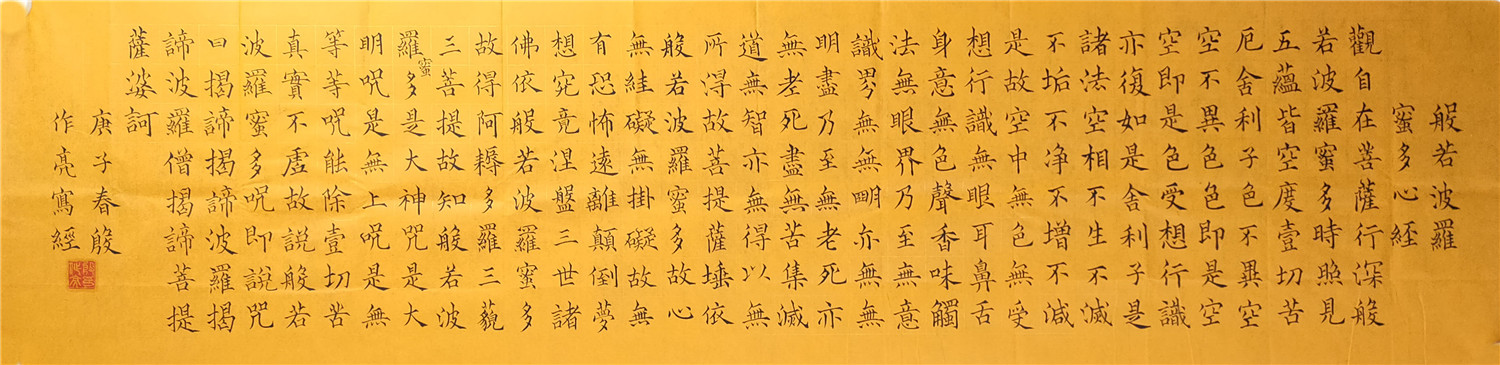 般若波羅
蜜多心経
觀自在菩薩行深般
若波羅蜜多時照見
五蘊皆空度壹切苦
厄舍利子色不異空
空不異色色即是空
空即是色受想行識
亦復如是舍利子是
諸法空相不生不滅
不垢不净不增不減
是故空中無色無受
想行識無眼耳鼻舌
身意無色聲香味觸
法無眼界乃至無意
識界無無明亦無無
明盡乃至無老死亦
無老死盡無苦集滅
道無智亦無得以無
所得故菩提薩埵依
般若波羅蜜多故心
無絓礙無掛礙故無
有恐怖遠離顛倒夢
想究竟涅盤三世諸
佛依般若波羅蜜多
故得阿耨多羅三藐
三菩提故知般若波
羅蜜多是大神咒是大
明咒是無上咒是無
等等咒能除壹切苦
真實不虛故說般若
波羅蜜多咒即說咒
曰揭諦揭諦波羅揭
諦波羅僧揭諦菩提
薩婆訶
庚子春殷
作亮寫經